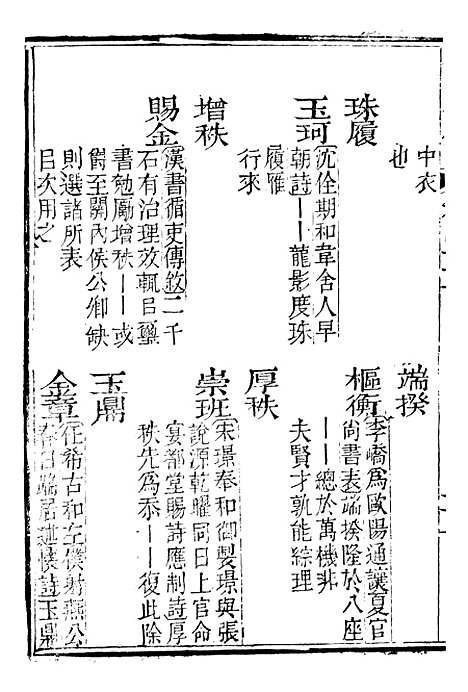 中衣
也
端揆
珠履
玉珂
沈佺期和韋舍人早
朝詩——龍影度珠
履雁
行來
樞衡
李嶠為歐陽通讓夏官
尚書表端揆隆於八座
——總於萬機非
夫賢才孰能綜理
增秩
賜金
漢書循吏傳敘二千
石有治理效輒㠯璽
書勉厲增秩——或
爵至關內侯公卿缺
則選諸所表
㠯次用之
厚秩
崇班
宋璟奉和御製璟與張
說源乾曜同日上官命
宴都堂賜詩應制詩厚
秩先為忝——復此除
玉鼎
金章
任希古和左僕射燕公
春日端居述懷詩玉鼎